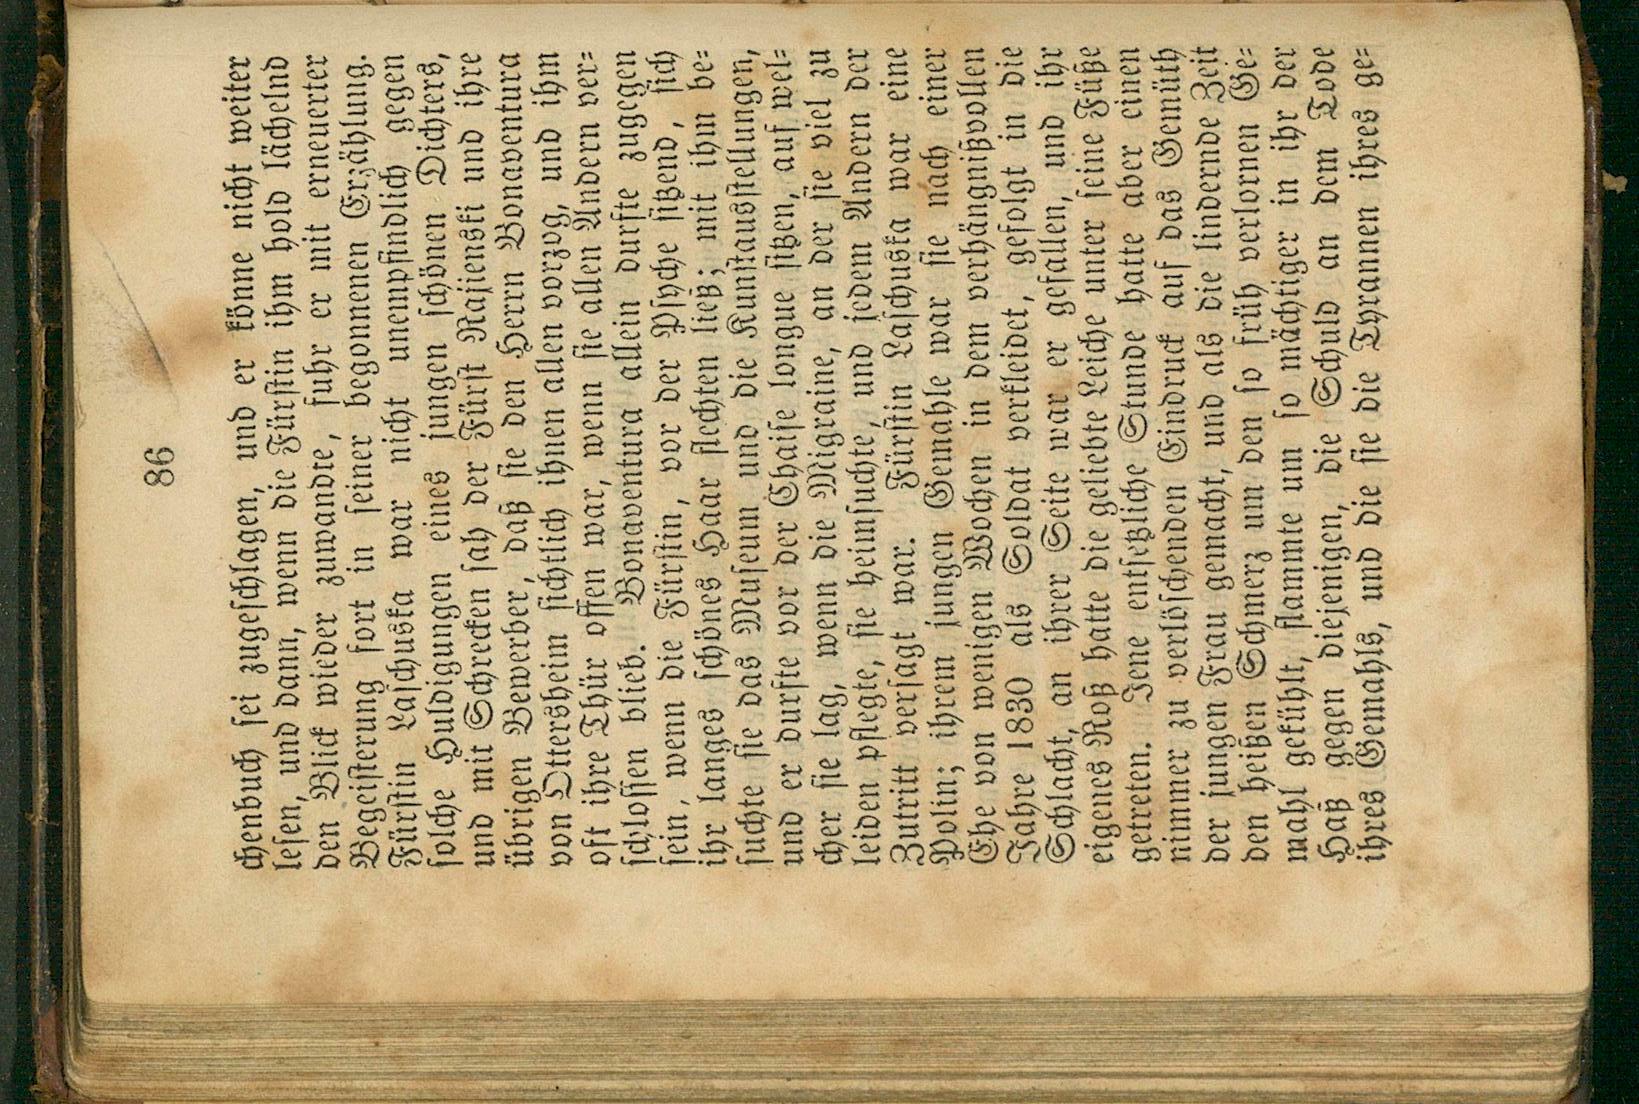 86
chenbuch sei zugeschlagen, und er könne nicht weiter
lesen, und dann, wenn die Fürstin ihm hold lächelnd
den Blick wieder zuwandte, fuhr er mit erneuerter
Begeisterung fort in seiner begonnenen Erzählung.
Fürstin Laschuska war nicht unempfindlich gegen
solche Huldigungen eines jungen schönen Dichters,
und mit Schrecken sah der Fürst Rasienski und ihre
übrigen Bewerber, daß sie den Herrn Bonaventura
von Ottersheim sichtlich ihnen allen vorzog, und ihm
oft ihre Thür offen war, wenn sie allen Andern ver=
schlossen blieb. Bonaventura allein durfte zugegen
sein, wenn die Fürstin, vor der Psyche sitzend, sich
ihr langes schönes Haar flechten ließ; mit ihm be=
suchte sie das Museum und die Kunstausstellungen,
und er durfte vor der Chaise longue sitzen, auf wel=
cher sie lag, wenn die Migraine, an der sie viel zu
leiden pflegte, sie heimsuchte, und jedem Andern der
Zutritt versagt war. Fürstin Laschuska war eine
Polin; ihrem jungen Gemahle war sie nach einer
Ehe von wenigen Wochen in dem verhängnißvollen
Jahre 1830 als Soldat verkleidet, gefolgt in die
Schlacht, an ihrer Seite war er gefallen, und ihr
eigenes Roß hatte die geliebte Leiche unter seine Füße
getreten. Jene entsetzliche Stunde hatte aber einen
nimmer zu verlöschenden Eindruck auf das Gemüth
der jungen Frau gemacht, und als die lindernde Zeit
den heißen Schmerz um den so früh verlornen Ge=
mahl gekühlt, flammte um so mächtiger in ihr der
Haß gegen diejenigen, die Schuld an dem Tode
ihres Gemahls, und die sie die Tyrannen ihres ge=